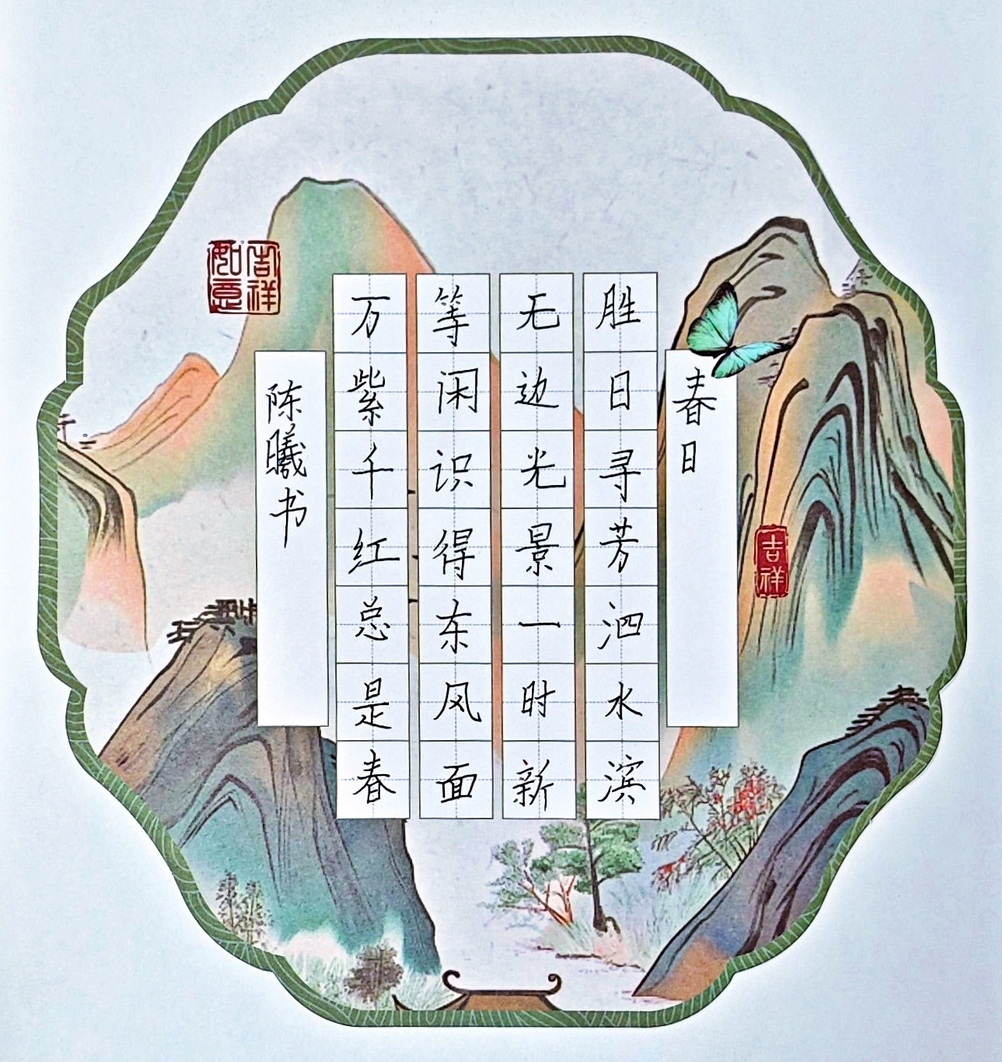 春日
胜日寻芳泗水滨
无边光景一时新
等闲识得东风面
万紫千红总是春
陈曦书
吉祥如意
吉祥